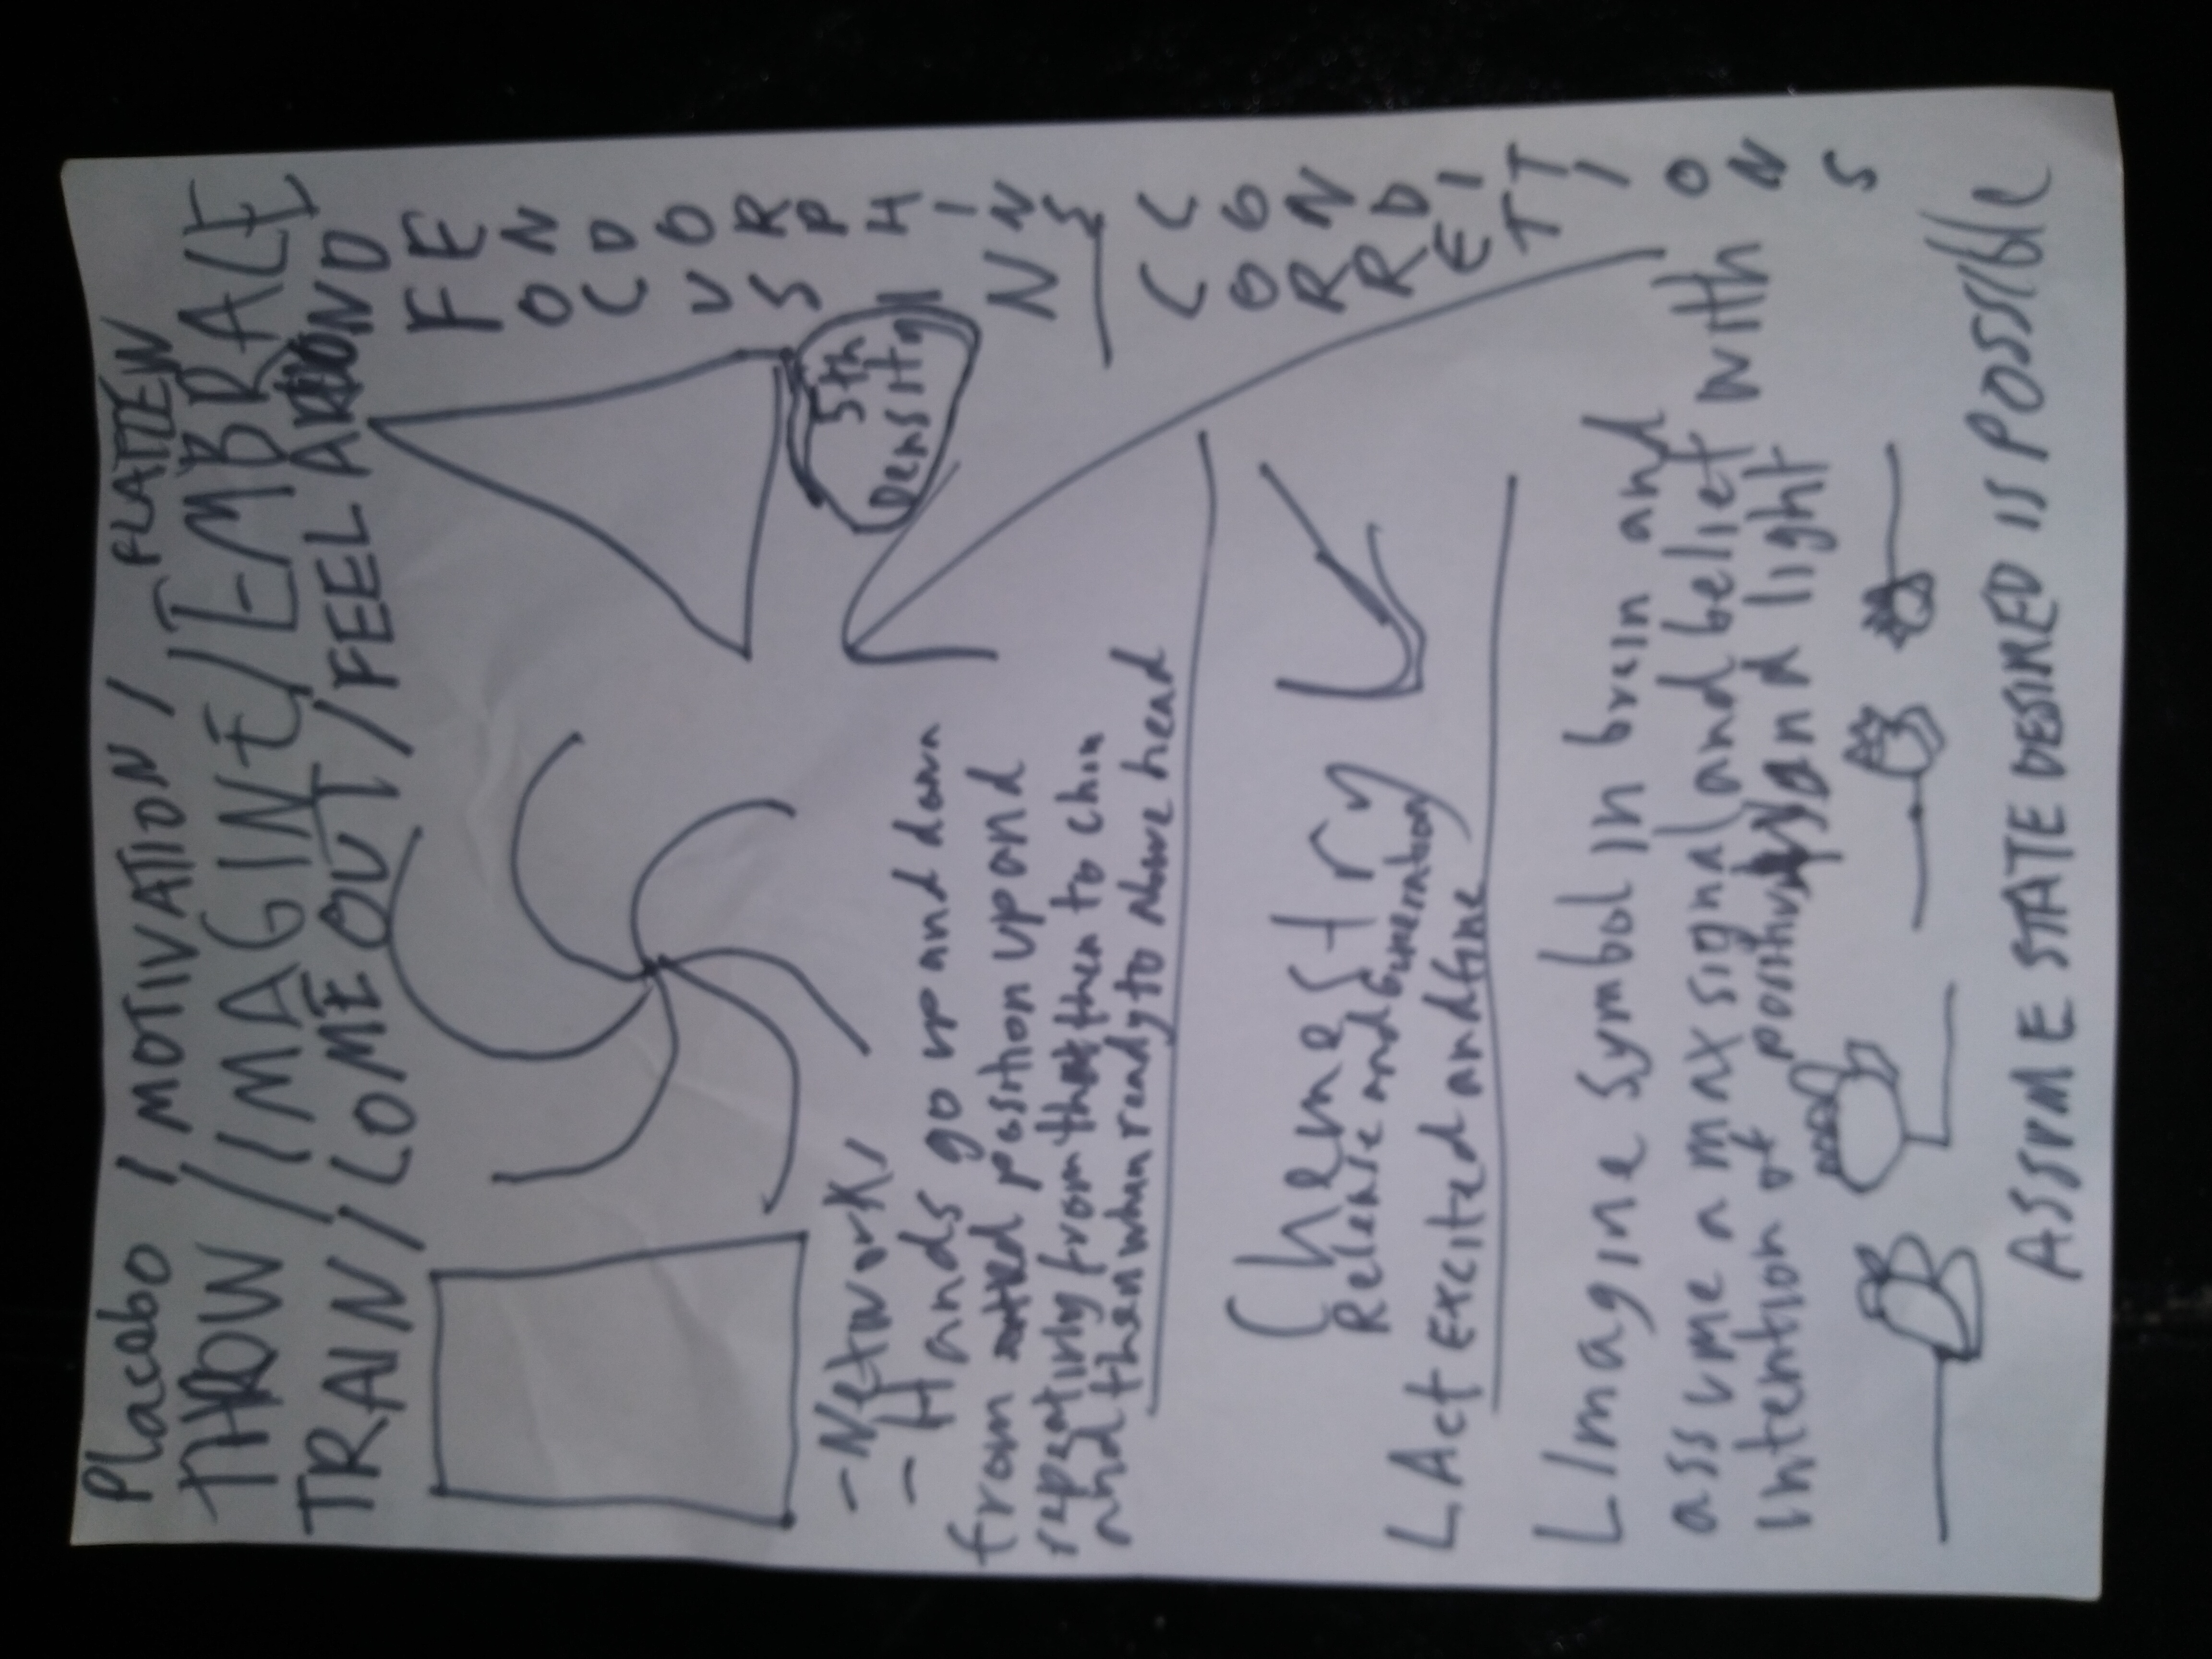 Placebo / MOTIVATION / FLATTEN
THROW / IMAGINE / EMBRACE
TRAIN / COME OUT / FEEL AROUND
FOCUS
ENDORPHINS
N
CORRECT
CONDITIONS
5th
Density
- Network
- Hands go up and down
from position up and
repeating from then to chin
and then when ready to above head
Chemestry
Release and
Act excited and fine
Imagine symbol in brain and
assume a max signal and belief with
intention of and light
ASSUME STATE DESIRED IS POSSIBLE